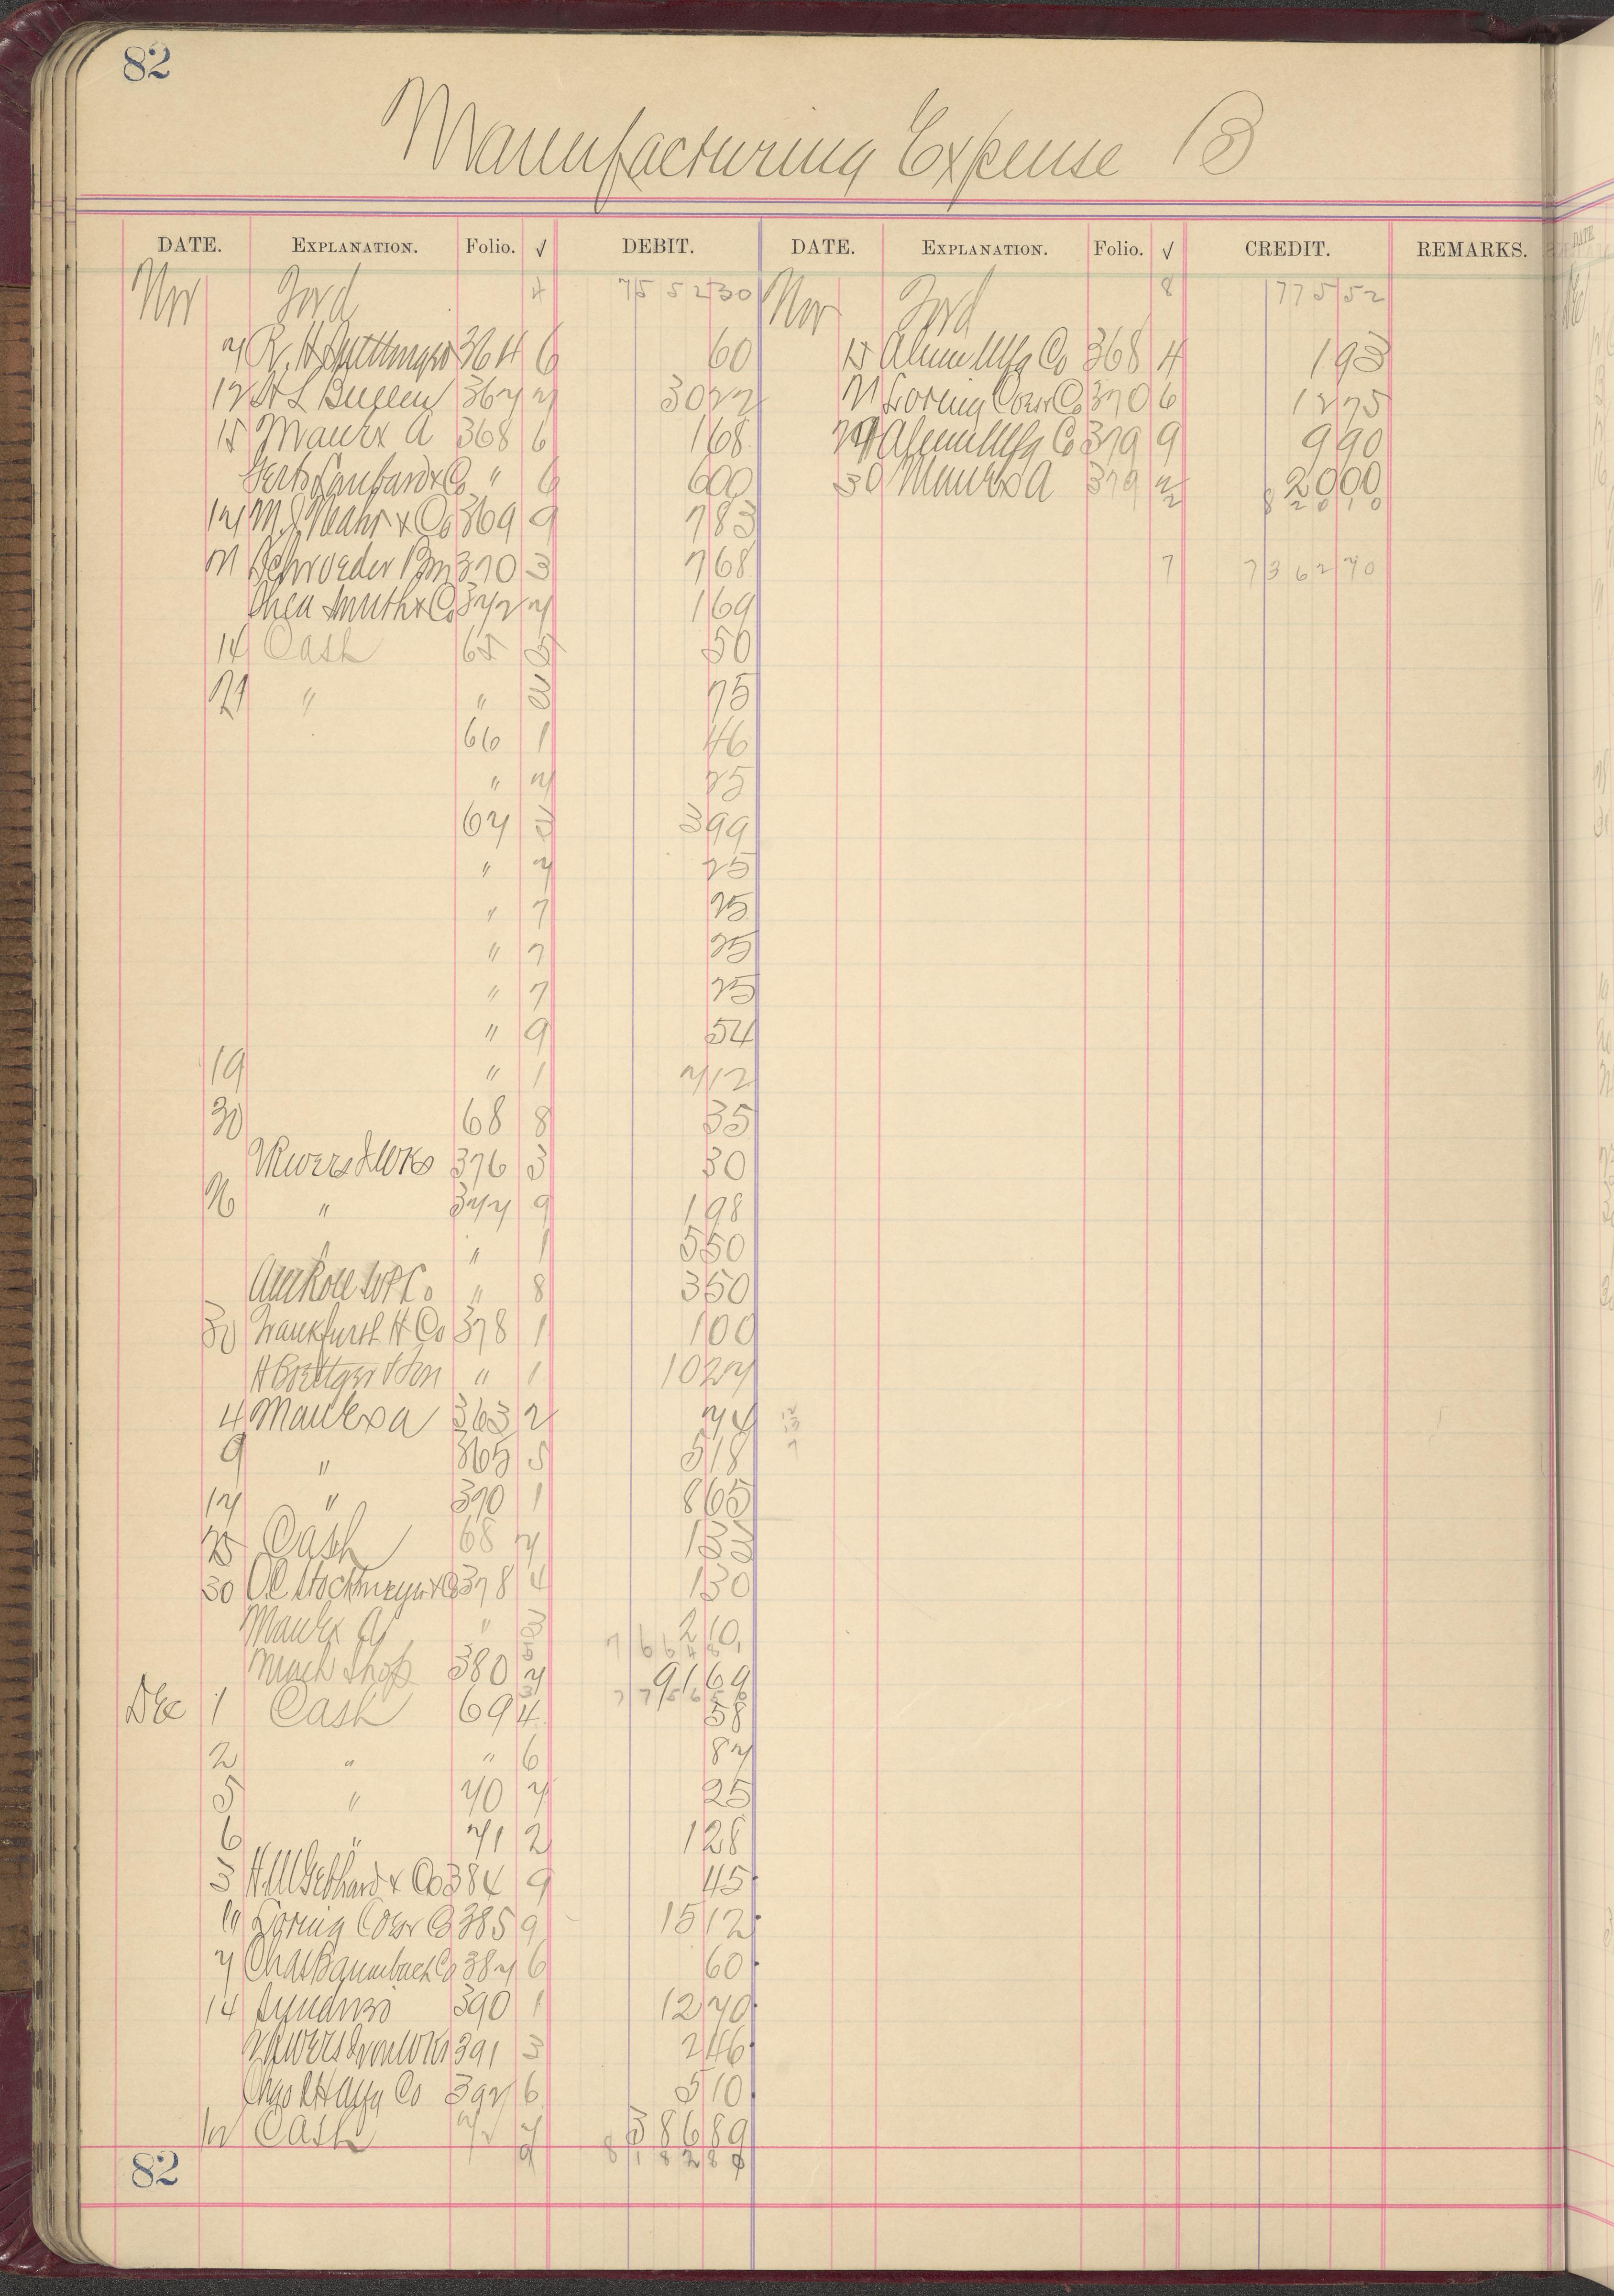 82
Manufacturing Expense B
DATE. EXPLANATION. Folio. √ DEBIT. DATE. EXPLANATION. Folio. √ CREDIT. REMARKS.
Nov Ford 4 7552 30 Nov Ford 8 1775 52
7 364 6 60 15 Alum Mfg Co 368 4 1 93
12 H L Bullen 367 7 30 22 21 Loring Coes Co 370 6 12 75
15 Manex A 368 6 1 68 29 Alum Mfg Co 379 9 9 90
Gerts Lumbard & Co " 6 6 00 30 Manex A 379 20 00
17 & Co 369 9 7 83
21 Schroeder 370 3 7 68 7 7362 70
Smith & Co 372 7 1 69
14 Cash 65 5 50
21 " " 3 75
66 1 46
" 7 25
67 3 3 99
" 7 25
" 7 25
" 7 25
" 7 25
" 9 54
19 " 1 7 12
30 68 8 35
Vivers I Wks 376 3 30
26 " 377 9 1 98
" 1 5 50
Am Roll W P Co " 8 3 50
30 Frankfurth H Co 378 1 1 00
H Boettger & Son " 1 10 27
4 Manex A 363 2 74
9 " 365 5 5 18
17 " 370 1 8 65
25 Cash 68 7 1 33
30 378 4 1 30
Manex A " 3 2 10
7664 8
Mach Shop 380 7 91 69
Dec 1 Cash 69 4 58
2 " " 6 87
5 " 70 7 25
6 " 71 2 1 28
3 H M Gebhard & Co 384 9 45
10 Loring Coes Co 385 9 15 12
7 Chas Baumbach Co 387 6 60
14 390 1 12 70
Vivers Iron Wks 391 3 2 46
Co 392 6 5 10
12 Cash 72 7 386 89
82